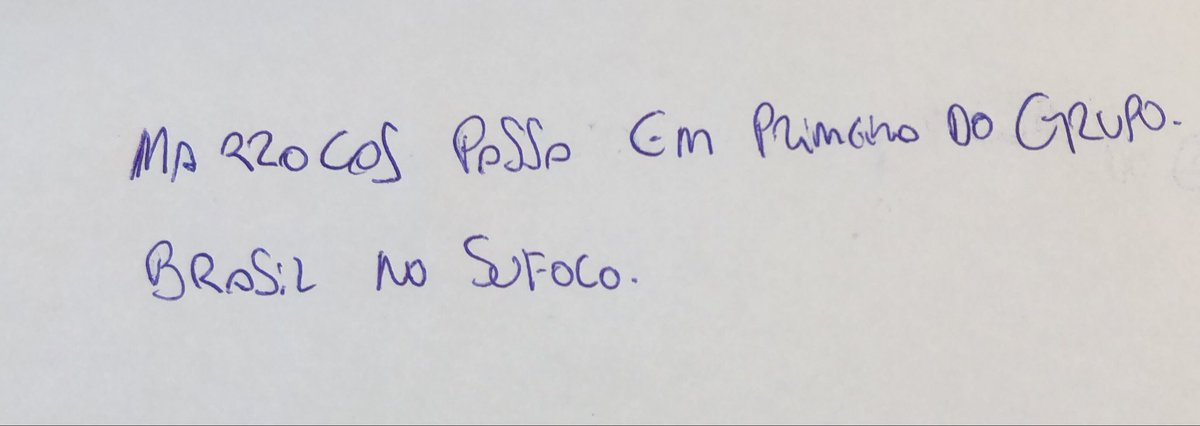 MARROCOS PASSA EM PRIMEIRO DO GRUPO.
BRASIL NO SUFOCO.